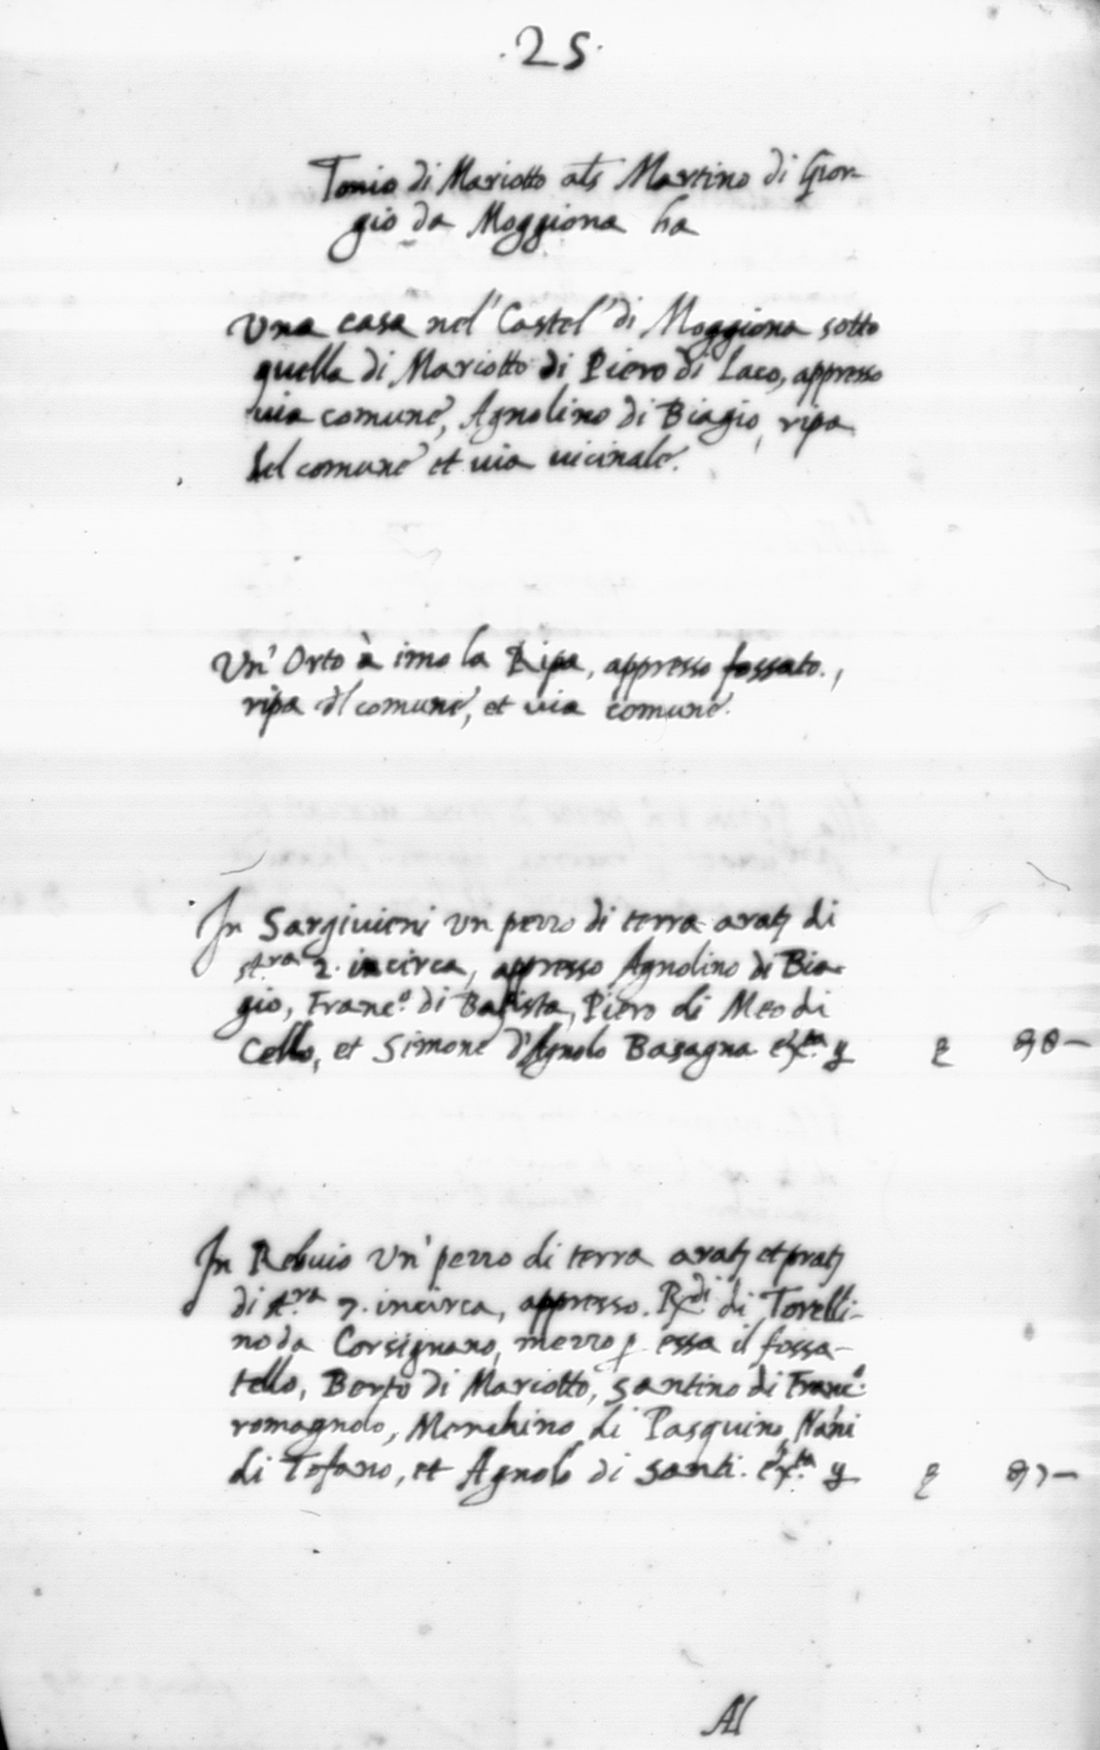 .25.
Tonio di Mariotto als Martino di Gior-
gio da Moggiona ha
Una casa nel' Castel' di Moggiona sotto
quella di Mariotto di Piero di Laco, appresso
via comune, Agnolino di Biagio, ripa
del comune et via vicinale.
Un' Orto à imo la Ripa, appresso fossato.,
ripa dl comune, et via comune.
In Sargivieni un pezzo di terra arat di
st.ra 2. incirca, appresso Agnolino di Bia-
gio, Franc.o di Batista, Piero di Meo di
Cello, et Simone d'Agnolo Basagna
In Rebuio Un' pezzo di terra arat et prat
di st.ra 7. incirca, appresso. Rx.di di Torelli-
no da Corsignano, mezzo p essa il fossa-
tello, Berto di Mariotto, Santino di Franc.o
romagnolo, Menchino di Pasquino, Nani
di Tofano, et Agnolo di Santi.
Al